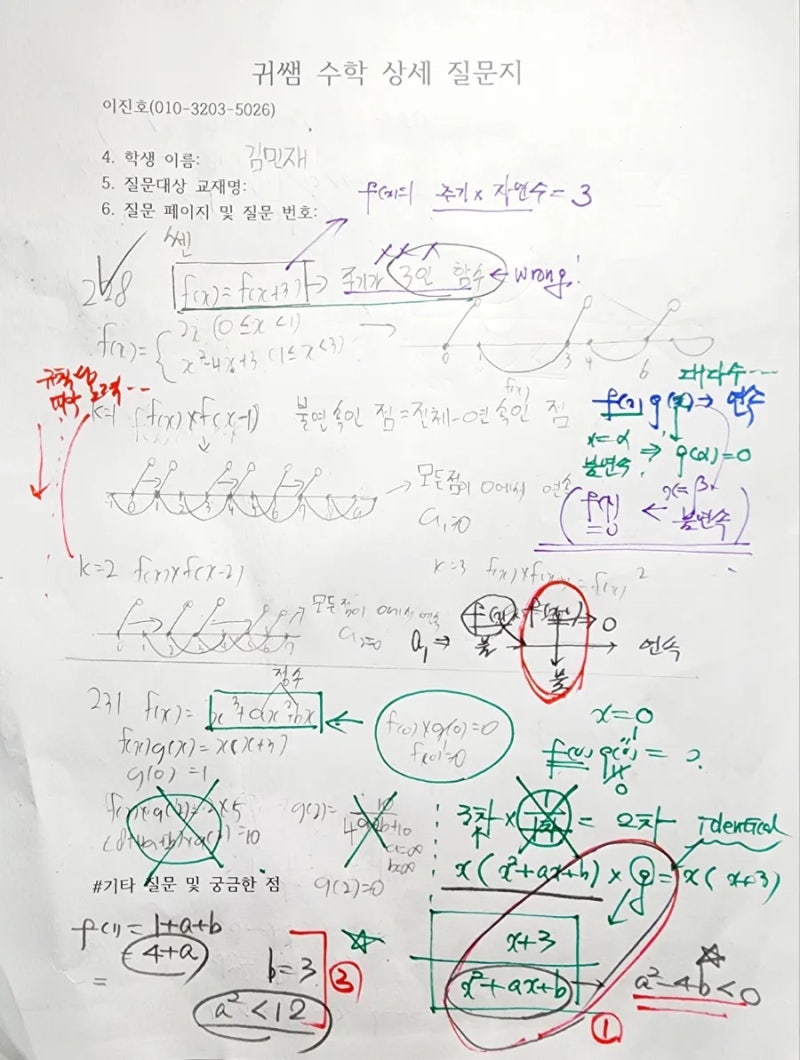 귀쌤 수학 상세 질문지
이진호(010-3203-5026)
4. 학생 이름: 김민재
5. 질문대상 교재명:
6. 질문 페이지 및 질문 번호:
f(x)의 주기 × 자연수 = 3
쎈
228 f(x)=f(x+3) → 주기가 3인 함수 ← wrong!
f(x)= { 2x (0≤x<1)
x²-4x+3 (1≤x<3) →
0 1 3 4 6
규칙성
k=1 f(x)×f(x-1) 불연속인 점=전체-연속인 점
대다수...
f(x) g(x) ⇒ 연속
x=α 불연속 ⇒ g(α)=0
→ 모든점이 0에서 연속
a₁=0
f(x)=0 ← x=β 불연속
k=2 f(x)×f(x-2)
k=3 f(x)×f(x-3)=f(x)²
모든점이 0에서 연속
a₂=0
a₁ ⇒ 불
0 연속
불
정수
231 f(x)= x³+ax²+bx
f(x)g(x)=x(x+3)
g(0)=1
f(0)×g(0)=0
f(0)=0
x=0
f(0) g(0) =
0
f(2)×g(2)=2×5
=10
g(2)= 10
g(2)=0
3차 × = 2차 Identical
x(x²+ax+b) × g = x(x+3)
#기타 질문 및 궁금한 점
f(1)= 1+a+b
= 4+a
=
b=3
a²<12
③
x+3
x²+ax+b → a²-4b<0
①